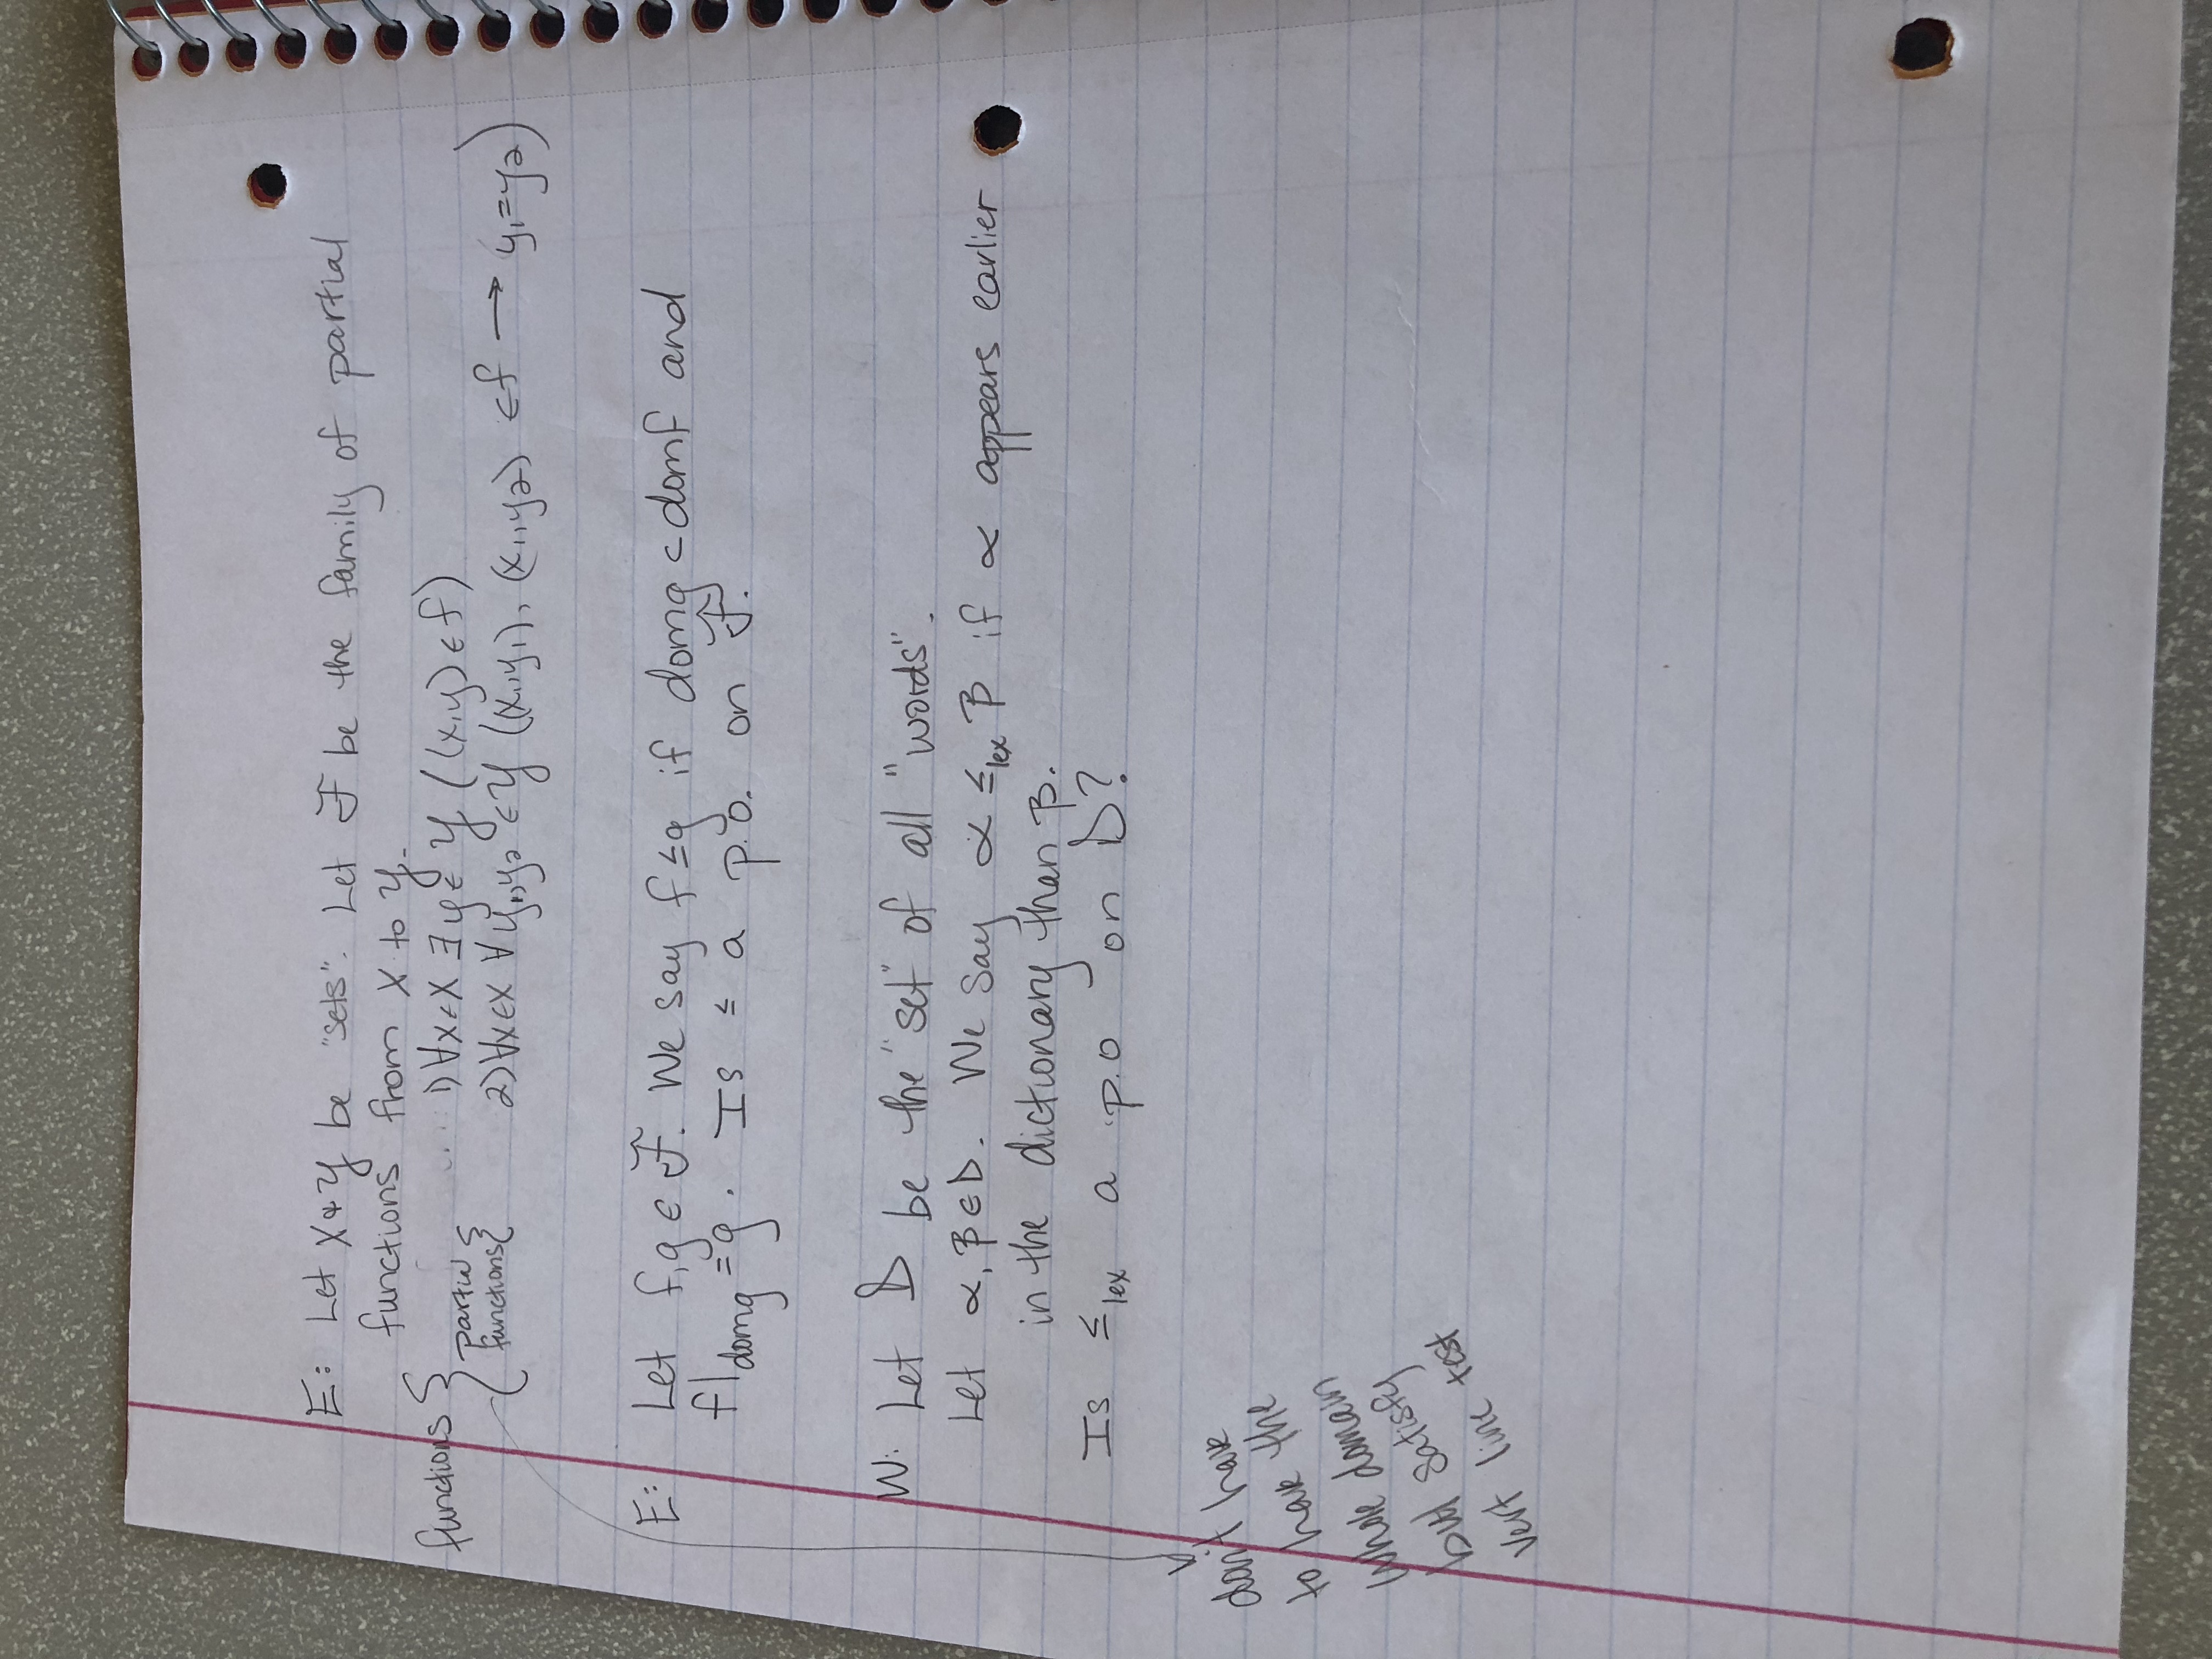 E: Let X & Y be "sets". Let F be the family of partial
functions from X to Y.
functions { 1) ∀x∈X ∃y∈Y ((x,y)∈f)
partial functions { 2) ∀x∈X ∀y₁,y₂∈Y ((x,y₁), (x,y₂) ∈f → y₁=y₂)
E: Let f,g ∈ F. We say f≤g if domg ⊂ domf and
f|domg = g. Is ≤ a p.o. on F.
W: Let D be the "set" of all "words".
Let α, β∈D. We say α ≤lex β if α appears earlier
in the dictionary than β.
Is ≤lex a p.o on D?
don't have
to have the
whole domain
but satisfy
vert line test